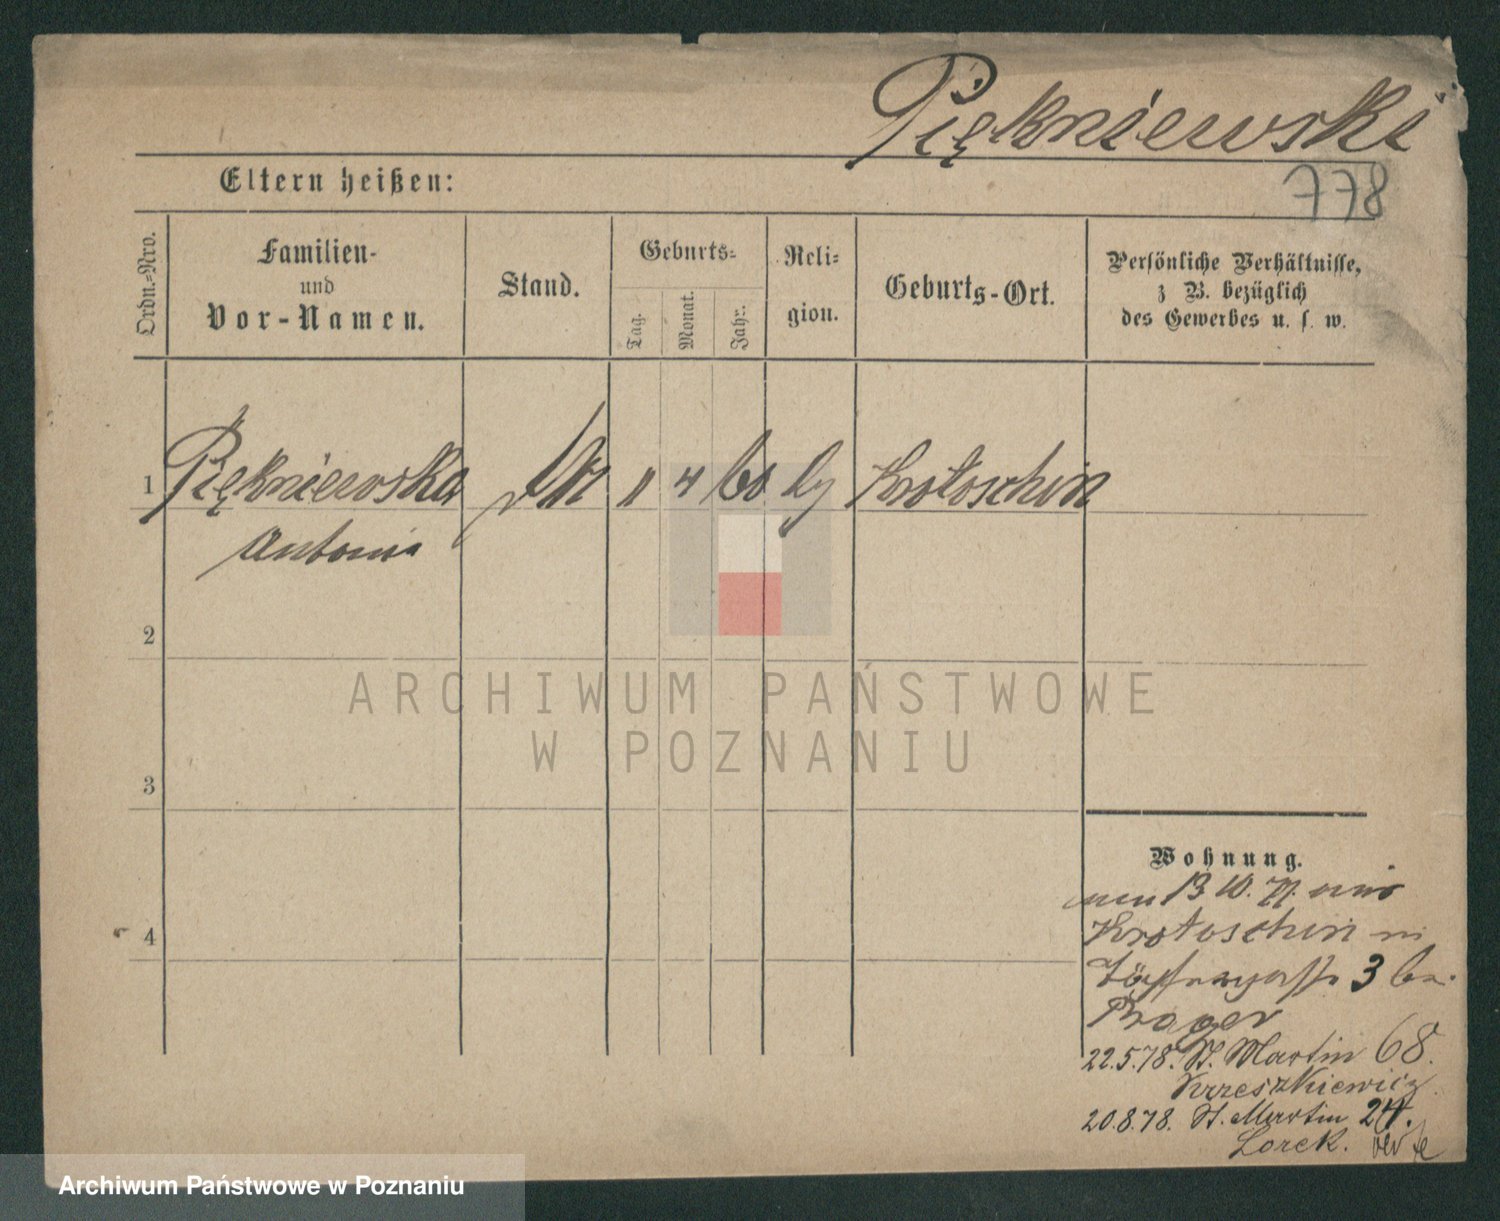 Piękniewski
778
Eltern heißen:
Ordn.=Nro.
Familien-
und
Vor-Namen.
Stand.
Geburts=
Tag.
Monat.
Jahr.
Reli=
gion.
Geburts-Ort.
Persönliche Verhältnisse,
z B. bezüglich
des Gewerbes u. s. w.
1
Piękniewska
Antonie
11 4 60
Krotoschin
2
3
4
ARCHIWUM PAŃSTWOWE
W POZNANIU
Wohnung.
13 10. 77.
Krotoschin
3
Prager
22.5.78. St. Martin 68.
Krzeszkiewicz
20.8.78. St. Martin 24.
Lorek.
Archiwum Państwowe w Poznaniu